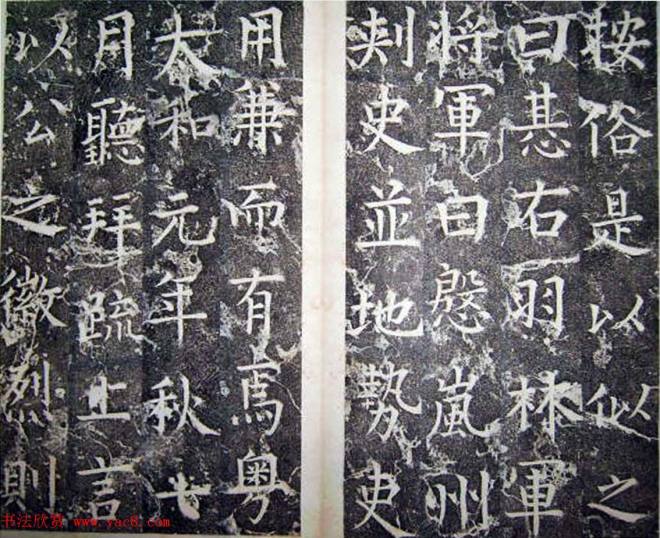 按俗是以似之
曰惎右羽林軍
將軍曰慇嵐州
刾史並地勢吏
用兼而有焉粤
太和元年秋七
月聽拜疏上言
以公之徽烈則
书法欣赏 www.yac8.com